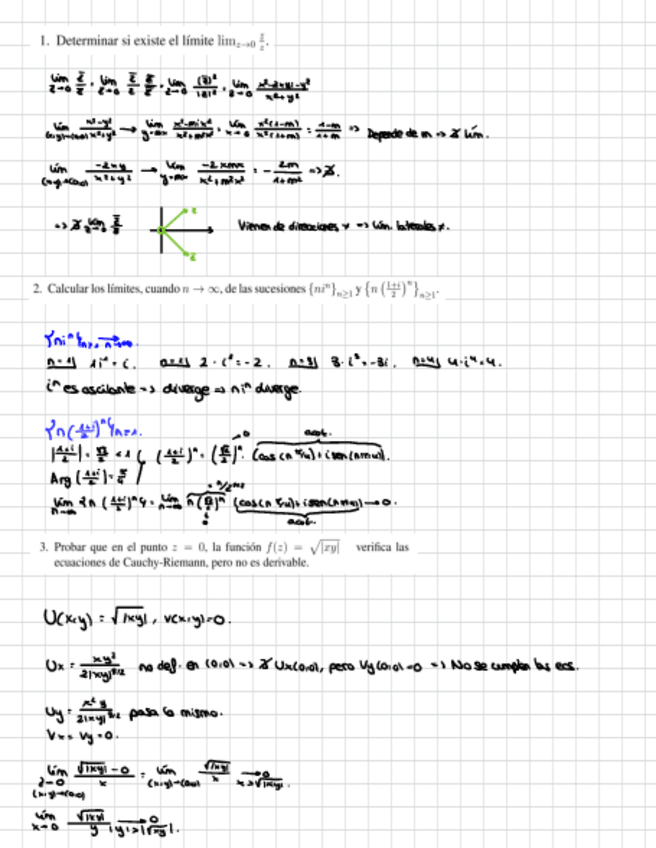 1. Determinar si existe el límite lim_{z→0} z̄/z.
lim_{z→0} z̄/z = lim_{z→0} z̄/z · z̄/z̄ = lim_{z→0} (z̄)²/|z|² = lim_{z→0} (x²-2xyi-y²)/(x²+y²)
lim_{(x,y)→(0,0)} (x²-y²)/(x²+y²) → lim_{y=mx} (x²-m²x²)/(x²+m²x²) = lim_{x→0} x²(1-m)/x²(1+m) = (1-m)/(1+m) => Depende de m => ∄ lím.
lim_{(x,y)→(0,0)} (-2xy)/(x²+y²) → lim_{y=mx} (-2xmx)/(x²+m²x²) = - 2m/(1+m²) => ∄.
=> ∄ lim_{z→0} z̄/z z z̄ Vienen de direcciones ≠ => lím. laterales ≠.
2. Calcular los límites, cuando n → ∞, de las sucesiones {niⁿ}_{n≥1} y {n((1+i)/2)ⁿ}_{n≥1}.
{niⁿ}_{n≥1}
n=1| 1i¹ = i. n=2| 2·i² = -2. n=3| 3·i³ = -3i. n=4| 4·i⁴ = 4.
iⁿ es oscilante => diverge => niⁿ diverge.
{n((1+i)/2)ⁿ}_{n≥1}.
→0 acot.
|(1+i)/2| = √2/2 < 1 ((1+i)/2)ⁿ = (√2/2)ⁿ · (cos(n π/4) + i sen(n π/4)).
Arg((1+i)/2) = π/4
lim_{n→∞} {n((1+i)/2)ⁿ} = lim_{n→∞} n(√2/2)ⁿ (cos(n π/4) + i sen(n π/4)) → 0.
0 acot.
3. Probar que en el punto z = 0, la función f(z) = √|xy| verifica las
ecuaciones de Cauchy-Riemann, pero no es derivable.
U(x,y) = √|xy|, v(x,y)=0.
Ux = xy²/2|xy|^{3/2} no def. en (0,0) => ∄ Ux(0,0), pero Vy(0,0)=0 => No se cumplen las ecs.
Uy = x²y/2|xy|^{3/2} pasa lo mismo.
Vx = Vy = 0.
lim_{z→0 (x,y)→(0,0)} (√|xy| - 0)/x = lim_{(x,y)→(0,0)} √|xy|/x →0 x>√|xy|.
lim_{x→0} √|xy|/y →0 |y|>|√xy|.